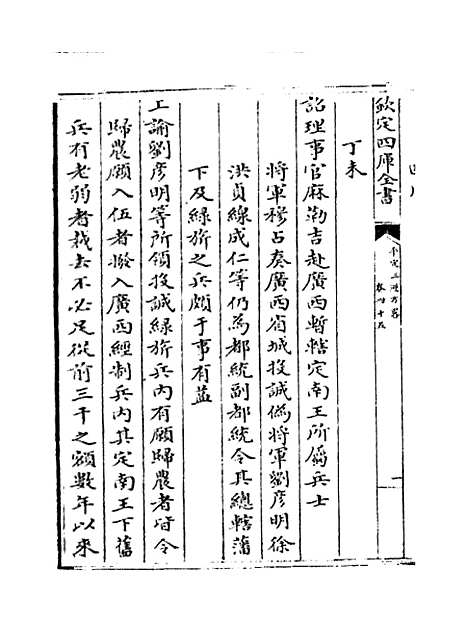 欽定四庫全書
平定三逆方畧
卷四十五
一
丁未
詔理事官麻勒吉赴廣西暫轄定南王所屬兵士
將軍穆占奏廣西省城投誠偽將軍劉彦明徐
洪貞線成仁等仍為都統副都統令其總轄藩
下及綠旂之兵頗于事有益
上諭劉彦明等所領投誠綠旂兵內有願歸農者皆令
歸農願入伍者撥入廣西經制兵內其定南王下舊
兵有老弱者裁去不必足從前三千之額數年以來